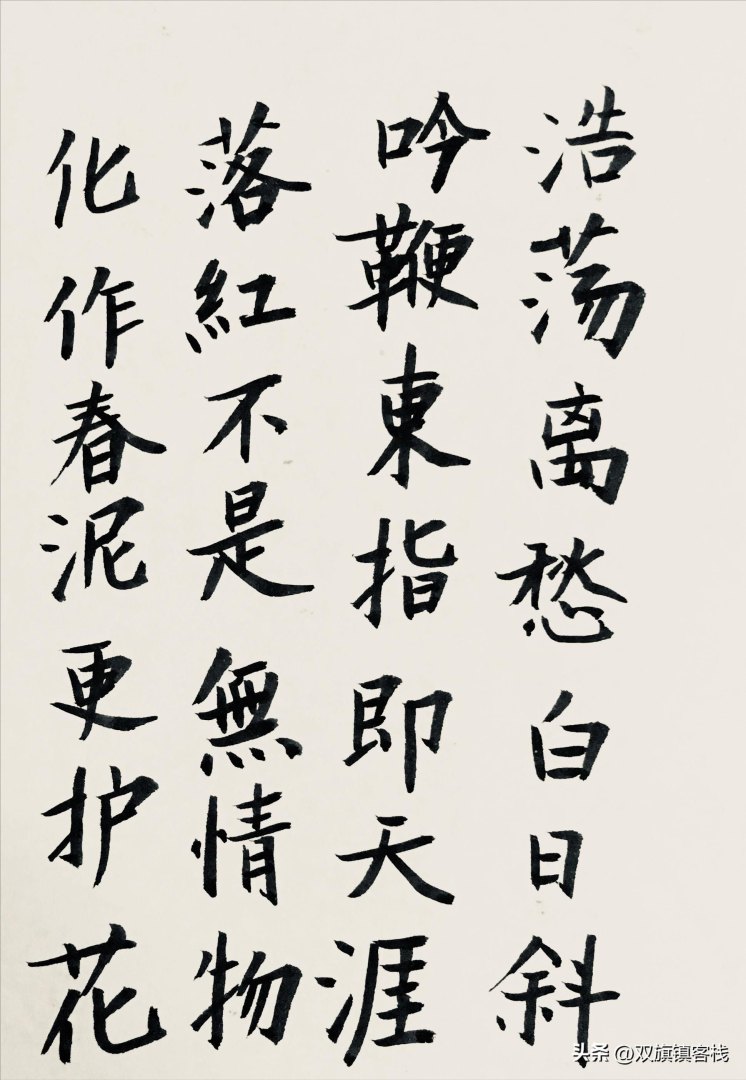 浩荡离愁白日斜
吟鞭東指即天涯
落紅不是無情物
化作春泥更护花
头条 @双旗镇客栈